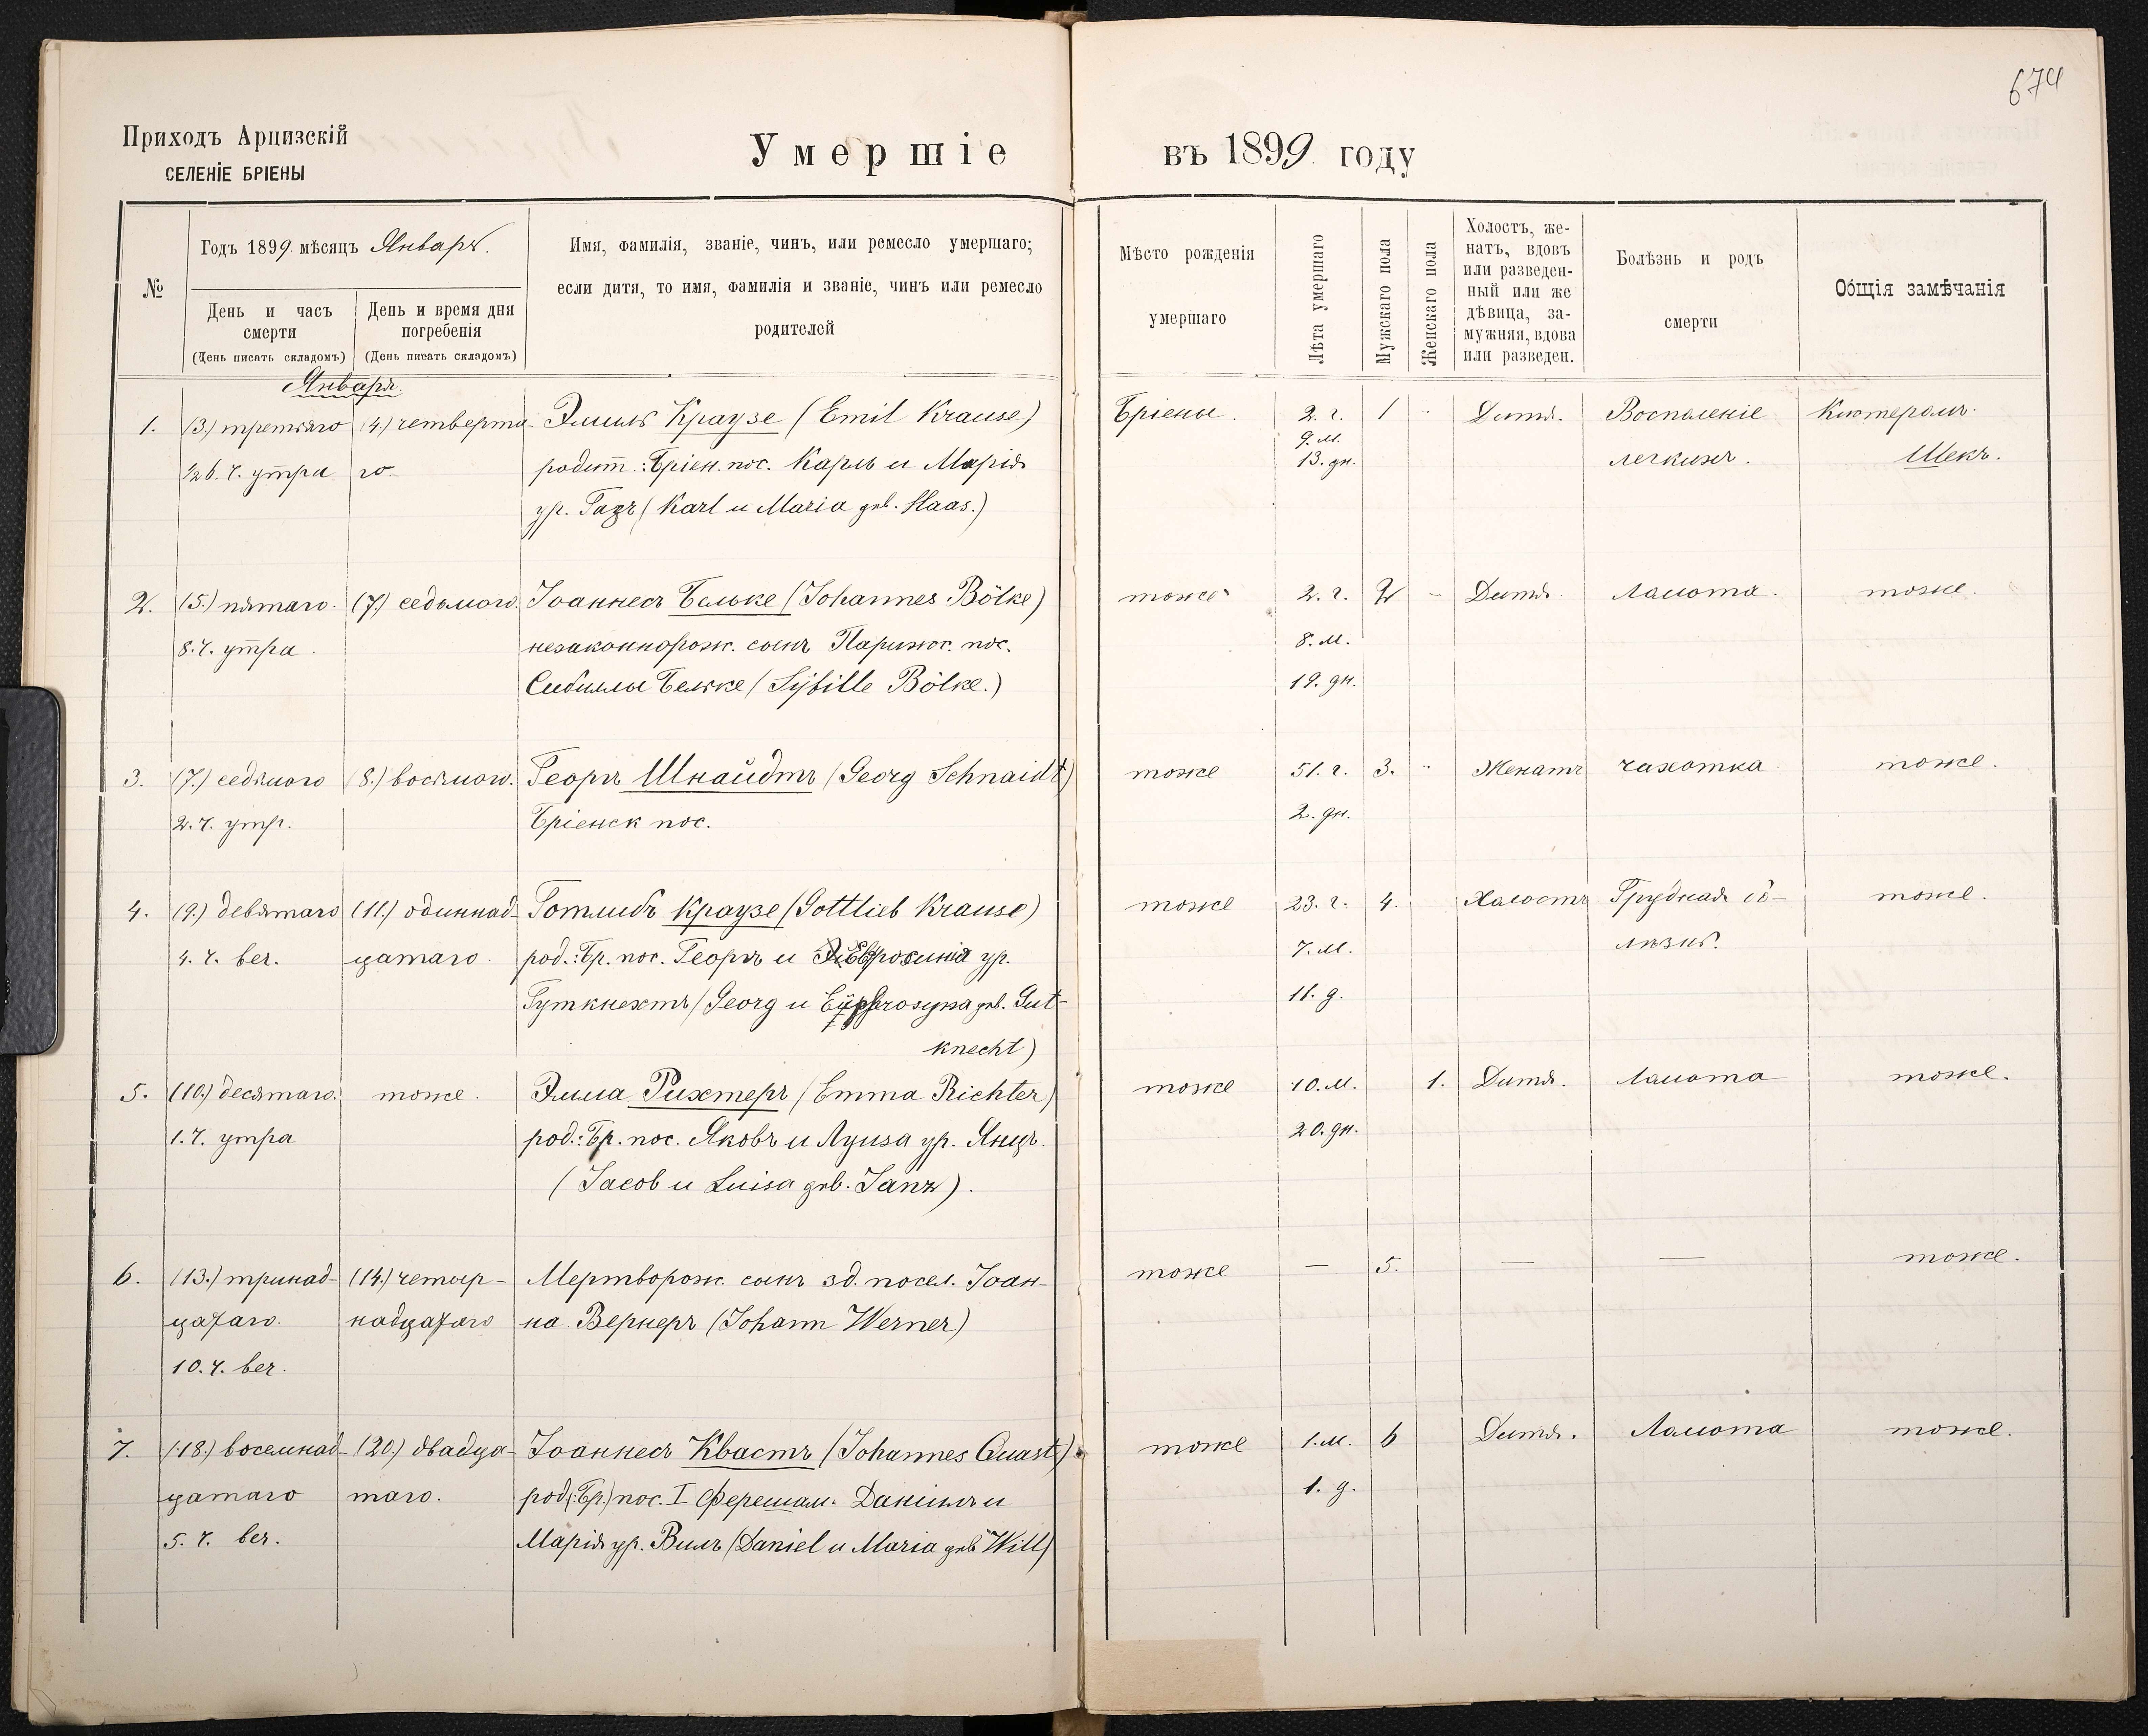 674
Приходъ Арцизскій
СЕЛЕНІЕ БРІЕНЫ
Умершіе
въ 1899 году
№
Годъ 1899 мѣсяцъ Январь.
День и часъ
смерти
(День писать складомъ)
День и время дня
погребенія
(День писать складомъ)
Имя, фамилія, званіе, чинъ, или ремесло умершаго;
если дитя, то имя, фамилія и званіе, чинъ или ремесло
родителей
Мѣсто рожденія
умершаго
Лѣта умершаго
Мужскаго пола
Женскаго пола
Холостъ, же-
натъ, вдовъ
или разведен-
ный или же
дѣвица, за-
мужняя, вдова
или разведен.
Болѣзнь и родъ
смерти
Общія замѣчанія
Января.
1. (3.) третяго (4.) четверта- Эмиль Краузе (Emil Krause) Бріены. 2. г. 1 Дитя. Воспаленіе Кистеромъ
½ 6. ч. утра го. родит.: Бріен. пос. Карль и Марія 9. м. 13. дн. легкихъ. Шекъ.
ур. Газъ (Karl и Maria дѣв. Haas.)
2. (5.) пятаго. (7.) седьмого. Іоаннесъ Бельке (Johannes Bölke) тоже 2. г. 2 - Дитя. Ламота. тоже.
8. ч. утра. незаконнорож. сынъ Париж. пос. 8. м.
Сибиллы Бельке (Sybille Bölke.) 19. дн.
3. (7.) седьмого (8.) восьмого. Георгъ Шнайдтъ (Georg Schnaidt) тоже 51. г. 3. Женатъ чахотка тоже.
2. ч. утр. Бріенск пос. 2. дн.
4. (9.) девятаго (11.) одиннад- Готлибъ Краузе (Gottlieb Krause) тоже 23. г. 4. Халостъ Грудная бо- тоже.
4. ч. веч. цатаго. род.: Бр. пос. Георгъ и Евросинія ур. 7. м. лѣзнь.
Гуткнехтъ (Georg и дѣв. Gut- 11. д.
knecht)
5. (10.) десятаго. тоже. Эмма Рихтеръ (Emma Richter) тоже 10. м. 1. Дитя. Ламота тоже.
1. ч. утра род.: Бр. пос. Яковъ и Луиза ур. Янцъ. 20. дн.
(Jacob и Luisa дѣв. Janz).
6. (13.) тринад- (14.) четыр- Мертворож. сынъ зд. посел. Іоан- тоже — 5. — — тоже.
цатаго. надцатаго на Вернеръ (Johann Werner)
10. ч. веч.
7. (18.) восемнад- (20.) двадца- Іоаннесъ Квастъ (Johannes Quast) тоже 1. м. 6 Дитя. Ламота тоже.
цатаго таго. род. (: Бр.) пос. I Ферешам. Даніилъ и 1. д.
5. ч. веч. Марія ур. Вилъ (Daniel и Maria дѣв. Will)